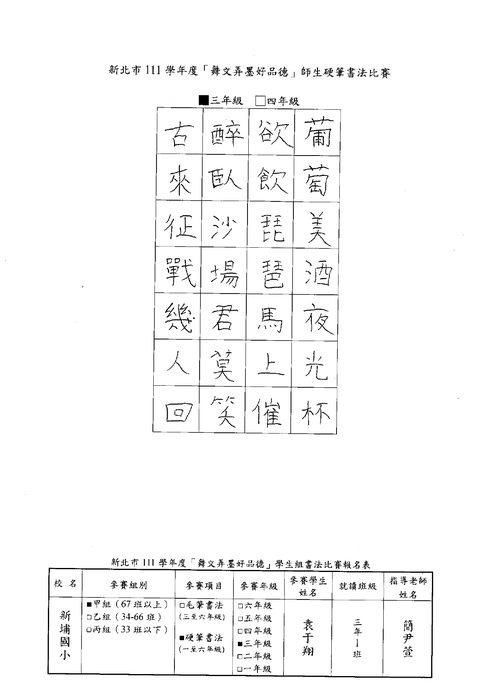 新北市 111 學年度「舞文弄墨好品德」師生硬筆書法比賽
■三年級 □四年級
葡萄美酒夜光杯
欲飲琵琶馬上催
醉臥沙場君莫笑
古來征戰幾人回
新北市 111 學年度「舞文弄墨好品德」學生組書法比賽報名表
校 名 參賽組別 參賽項目 參賽年級 參賽學生姓名 就讀班級 指導老師姓名
新埔國小
■甲組（67 班以上）
□乙組（34-66 班）
□丙組（33 班以下）
□毛筆書法
（三至六年級）
■硬筆書法
（一至六年級）
□六年級
□五年級
□四年級
■三年級
□二年級
□一年級
袁于翔
三年1班
簡尹萱